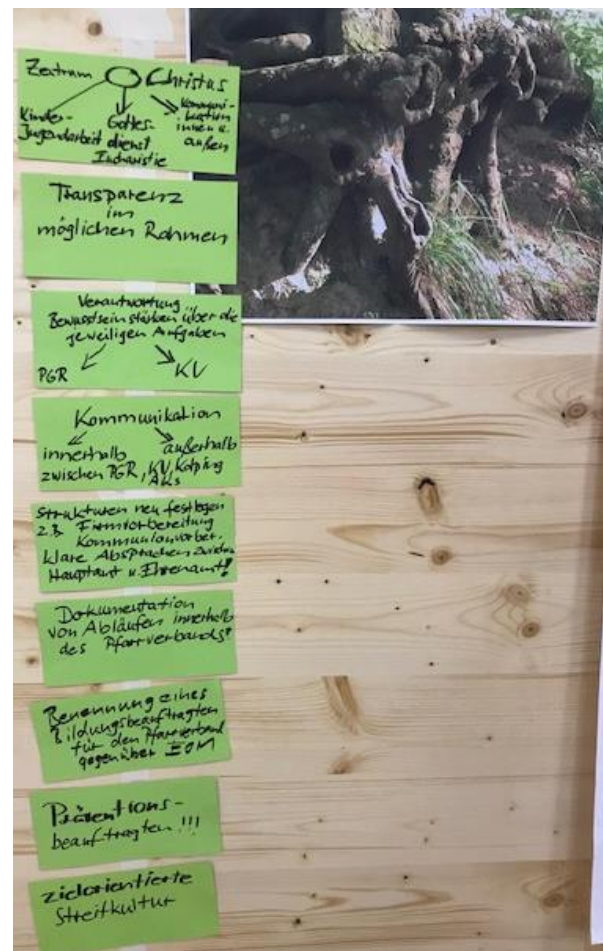 Zentrum Christus
Kinder- Jugendarbeit
Gottes- dienst Eucharistie
Kommuni- kation innen u. außen
Transparenz
im
möglichen Rahmen
Verantwortung
Bewusstsein stärken über die
jeweiligen Aufgaben
PGR KV
Kommunikation
innerhalb außerhalb
zwischen PGR, KV, Kolping
AKs
Strukturen neu festlegen
z.B. Firmvorbereitung
Kommunionvorber.
klare Absprachen zwischen
Hauptamt u. Ehrenamt!
Dokumentation
von Abläufen innerhalb
des Pfarrverbands!
Benennung eines
Bildungsbeauftragten
für den Pfarrverband
gegenüber EOM
Präventions-
beauftragten !!!
zielorientierte
Streitkultur